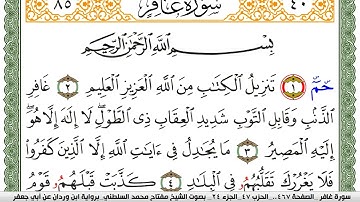 ٨٥ سُورَةُ غَافِرٍ ٤٠
بِسْمِ اللَّهِ الرَّحْمَٰنِ الرَّحِيمِ
حمٓ ١ تَنزِيلُ الْكِتَابِ مِنَ اللَّهِ الْعَزِيزِ الْعَلِيمِ ٢ غَافِرِ
الذَّنبِ وَقَابِلِ التَّوْبِ شَدِيدِ الْعِقَابِ ذِي الطَّوْلِ لَا إِلَٰهَ إِلَّا هُوَ
إِلَيْهِ الْمَصِيرُ ٣ مَا يُجَادِلُ فِي ءَايَاتِ اللَّهِ إِلَّا الَّذِينَ كَفَرُوا
فَلَا يَغْرُرْكَ تَقَلُّبُهُمُ فِي الْبِلَادِ ٤ كَذَّبَتْ قَبْلَهُمُ قَوْمُ
سورة غافر _ الصفحة ٤٦٧ _ الحزب ٤٧ _ الجزء ٢٤ _ بصوت الشيخ مفتاح محمد السلطني _ برواية ابن وردان عن أبي جعفر